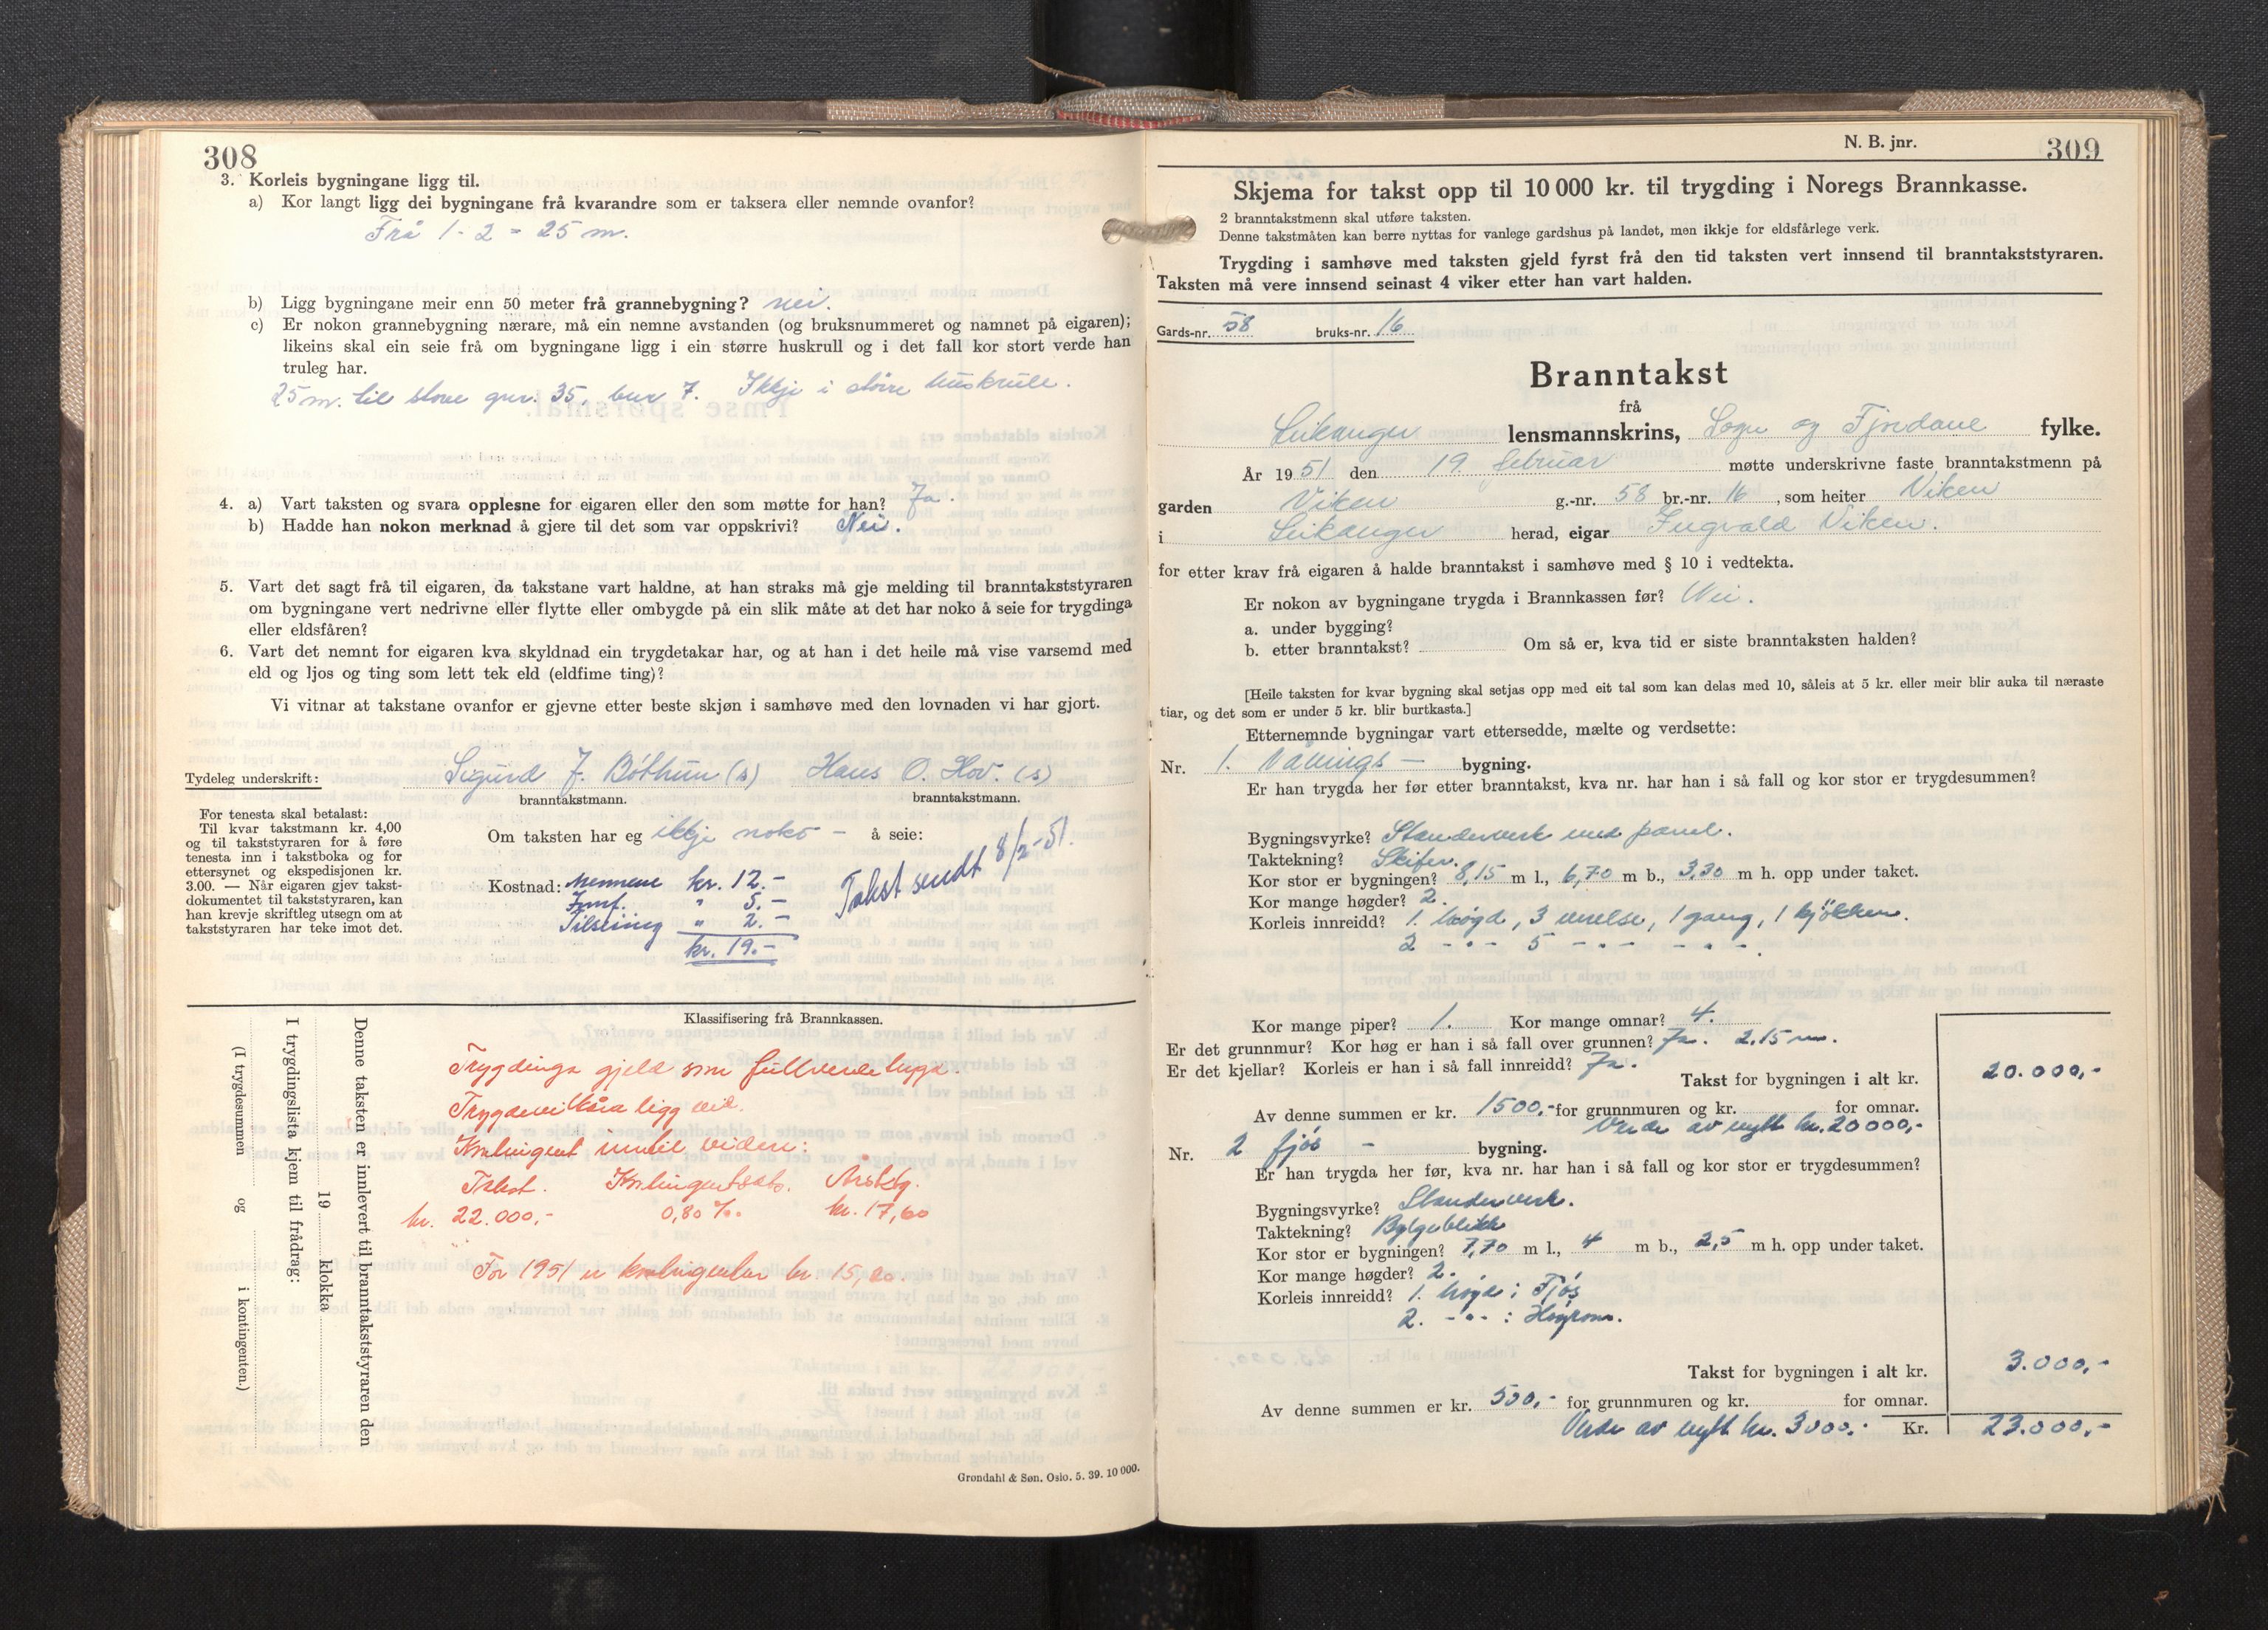 308
3. Korleis bygningane ligg til.
a) Kor langt ligg dei bygningane frå kvarandre som er taksera eller nemnde ovanfor?
Frå 1 - 2 = 25 m.
b) Ligg bygningane meir enn 50 meter frå grannebygning? nei.
c) Er nokon grannebygning nærare, må ein nemne avstanden (og bruksnummeret og namnet på eigaren);
likeins skal ein seie frå om bygningane ligg i ein større huskrull og i det fall kor stort verde han
truleg har.
25 m. til stove gnr. 35, bnr 7. Ikkje i større huskrull.
4. a) Vart taksten og svara opplesne for eigaren eller den som møtte for han? Ja.
b) Hadde han nokon merknad å gjere til det som var oppskrivi? Nei.
5. Vart det sagt frå til eigaren, da takstane vart haldne, at han straks må gje melding til branntakststyraren
om bygningane vert nedrivne eller flytte eller ombygde på ein slik måte at det har noko å seie for trygdinga
eller eldsfåren?
6. Vart det nemnt for eigaren kva skyldnad ein trygdetakar har, og at han i det heile må vise varsemd med
eld og ljos og ting som lett tek eld (eldfime ting)?
Vi vitnar at takstane ovanfor er gjevne etter beste skjøn i samhøve med den lovnaden vi har gjort.
Tydeleg underskrift: Sigurd J. Bøthun (s) Hans O. Hov. (s)
branntakstmann. branntakstmann.
For tenesta skal betalast:
Til kvar takstmann kr. 4,00
og til takststyraren for å føre
tenesta inn i takstboka og for
ettersynet og ekspedisjonen kr.
3.00. — Når eigaren gjev takst-
dokumentet til takststyraren, kan
han krevje skriftleg utsegn om at
takststyraren har teke imot det.
Om taksten har eg ikkje noko - å seie:
Kostnad: Mennene kr. 12.-
Innf. " 5.-
Tilsteling " 2.-
kr. 19.-
Takst sendt 8/2-51.
Klassifisering frå Brannkassen.
Trygdinga gjeld som fullverdetrygd.
Trygdevilkåra ligg ved.
Kontingent inntil vidare:
Takst. Kontingentsats. Årsktg.
kr. 22.000,- 0,80 ‰ kr. 17,60
For 1951 er kontingenten kr. 15,20.
Denne taksten er innlevert til branntakststyraren den
19 klokka
I trygdingslista kjem til frådrag:
(I trygdesummen og i kontingenten.)
Grøndahl & Søn. Oslo. 5. 39. 10 000.
N. B. jnr.
309
Skjema for takst opp til 10 000 kr. til trygding i Noregs Brannkasse.
2 branntakstmenn skal utføre taksten.
Denne takstmåten kan berre nyttas for vanlege gardshus på landet, men ikkje for eldsfårlege verk.
Trygding i samhøve med taksten gjeld fyrst frå den tid taksten vert innsend til branntakststyraren.
Taksten må vere innsend seinast 4 viker etter han vart halden.
Gards-nr. 58 bruks-nr. 16
Branntakst
frå
Leikanger lensmannskrins, Sogn og Fjordane fylke.
År 1951 den 19 februar møtte underskrivne faste branntakstmenn på
garden Viken g.-nr. 58 br.-nr. 16, som heiter Viken
i Leikanger herad, eigar Ingvald Viken.
for etter krav frå eigaren å halde branntakst i samhøve med § 10 i vedtekta.
Er nokon av bygningane trygda i Brannkassen før? Nei.
a. under bygging?
b. etter branntakst? Om så er, kva tid er siste branntaksten halden?
[Heile taksten for kvar bygning skal setjas opp med eit tal som kan delas med 10, såleis at 5 kr. eller meir blir auka til næraste
tiar, og det som er under 5 kr. blir burtkasta.]
Etternemnde bygningar vart ettersedde, mælte og verdsette:
Nr. 1. Vånings - bygning.
Er han trygda her før etter branntakst, kva nr. har han i så fall og kor stor er trygdesummen?
Bygningsvyrke? Standerverk med panel.
Taktekning? Skifer.
Kor stor er bygningen? 8,15 m l., 6,70 m b., 3,30 m h. opp under taket.
Kor mange høgder? 2.
Korleis innreidd? 1. høgd, 3 verelse, 1 gang, 1 kjökken.
2 - " - 5 - " - - " -
Kor mange piper? 1. Kor mange omnar? 4.
Er det grunnmur? Kor høg er han i så fall over grunnen? Ja. 2,15 m.
Er det kjellar? Korleis er han i så fall innreidd? Ja.
Takst for bygningen i alt kr. 20.000,-
Av denne summen er kr. 1500,- for grunnmuren og kr. for omnar.
Verde av nytt kr. 20000,-
Nr. 2 fjös - bygning.
Er han trygda her før, kva nr. har han i så fall og kor stor er trygdesummen?
Bygningsvyrke? Standerverk.
Taktekning? Bylgeblikk
Kor stor er bygningen? 7,70 m l., 4 m b., 2,5 m h. opp under taket.
Kor mange høgder? 2.
Korleis innreidd? 1. høgd: Fjös
2. - " - : Höyrom.
Takst for bygningen i alt kr. 3.000,-
Av denne summen er kr. 500,- for grunnmuren og kr. for omnar.
Verde av nytt kr. 3000.- Kr. 23.000,-